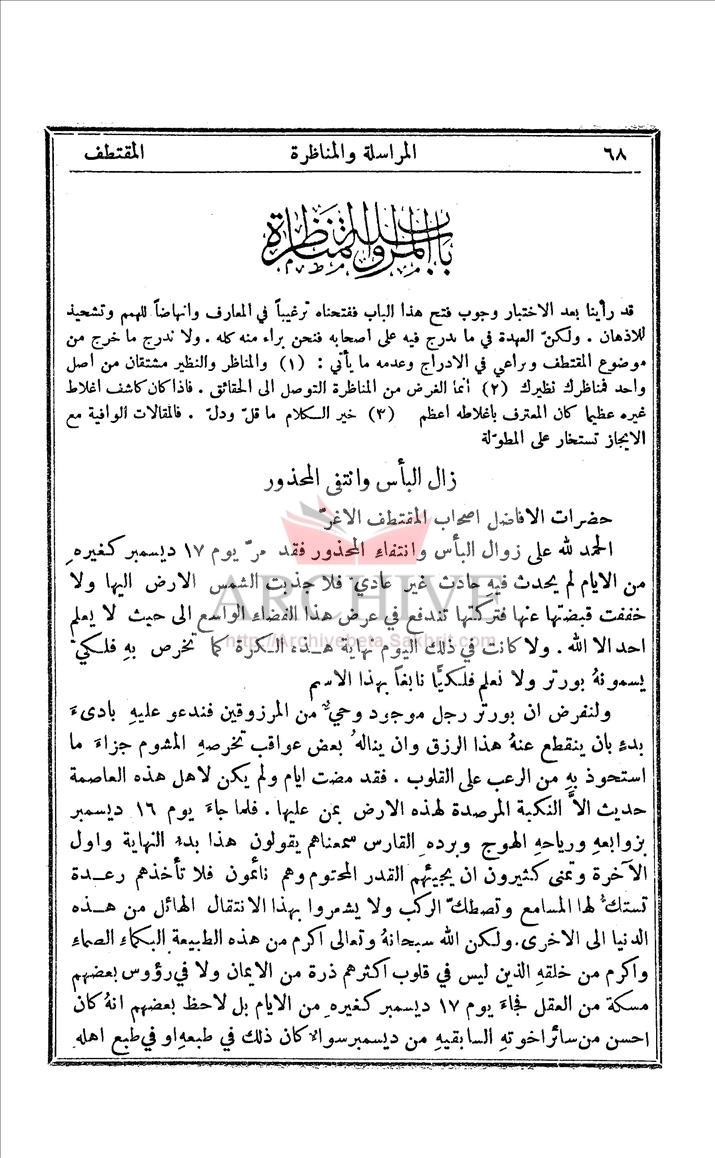 ٦٨ المراسلة والمناظرة المقتطف
باب المراسلة والمناظرة
قد رأينا بعد الاختبار وجوب فتح هذا الباب ففتحناه ترغيباً في المعارف وانهاضاً للهمم وتشحيذ
للاذهان . ولكنّ العهدة في ما يدرج فيه على اصحابه فنحن براء منه كله . ولا ندرج ما خرج من
موضوع المقتطف ونراعي في الادراج وعدمه ما يأتي : (١) والمناظر والنظير مشتقان من اصل
واحد فمناظرك نظيرك (٢) انما الغرض من المناظرة التوصل الى الحقائق . فاذا كان كاشف اغلاط
غيره عظيما كان المعترف باغلاطه اعظم (٣) خير الكلام ما قلّ ودلّ . فالمقالات الوافية مع
الايجاز تستخار على المطوّلة
زال البأس وانتفى المحذور
حضرات الافاضل اصحاب المقتطف الاغرّ
الحمد لله على زوال البأس وانتفاء المحذور فقد مرّ يوم ١٧ ديسمبر كغيره
من الايام لم يحدث فيه حادث غير عادي فلا جذبت الشمس الارض اليها ولا
خففت قبضتها عنها فتركتها تندفع في عرض هذا الفضاء الواسع الى حيث لا يعلم
احد الا الله . ولا كانت في ذلك اليوم نهاية هذه الكرة كما تخرص به فلكي
يسمونهُ بورتر ولا نعلم فلكيًّا نابغاً بهذا الاسم
ولنفرض ان بورتر رجل موجود وحيّ من المرزوقين فندعو عليهِ بادىءَ
بدءٍ بان ينقطع عنهُ هذا الرزق وان ينالهُ بعض عواقب تخرصهِ المشوم جزاءَ ما
استحوذ بهِ من الرعب على القلوب . فقد مضت ايام ولم يكن لاهل هذه العاصمة
حديث الاَّ النكبة المرصدة لهذه الارض بمن عليها . فلما جاءَ يوم ١٦ ديسمبر
بزوابعهِ ورياحهِ الهوج وبرده القارس سمعناهم يقولون هذا بدء النهاية واول
الآخرة وتمنى كثيرون ان يجيئهم القدر المحتوم وهم نائمون فلا تأخذهم رعدة
تستكّ لها المسامع وتصطكّ الركب ولا يشعروا بهذا الانتقال الهائل من هذه
الدنيا الى الاخرى. ولكن الله سبحانهُ وتعالى اكرم من هذه الطبيعة البكماء الصماء
واكرم من خلقهِ الذين ليس في قلوب اكثرهم ذرة من الايمان ولا في رؤوس بعضهم
مسكة من العقل فجاءَ يوم ١٧ ديسمبر كغيرهِ من الايام بل لاحظ بعضهم انهُ كان
احسن من سائر اخوتهِ السابقيهِ من ديسمبر سواء كان ذلك في طبعهِ او في طبع اهله
ARCHIVE
http://Archivebeta.Sakhrit.com